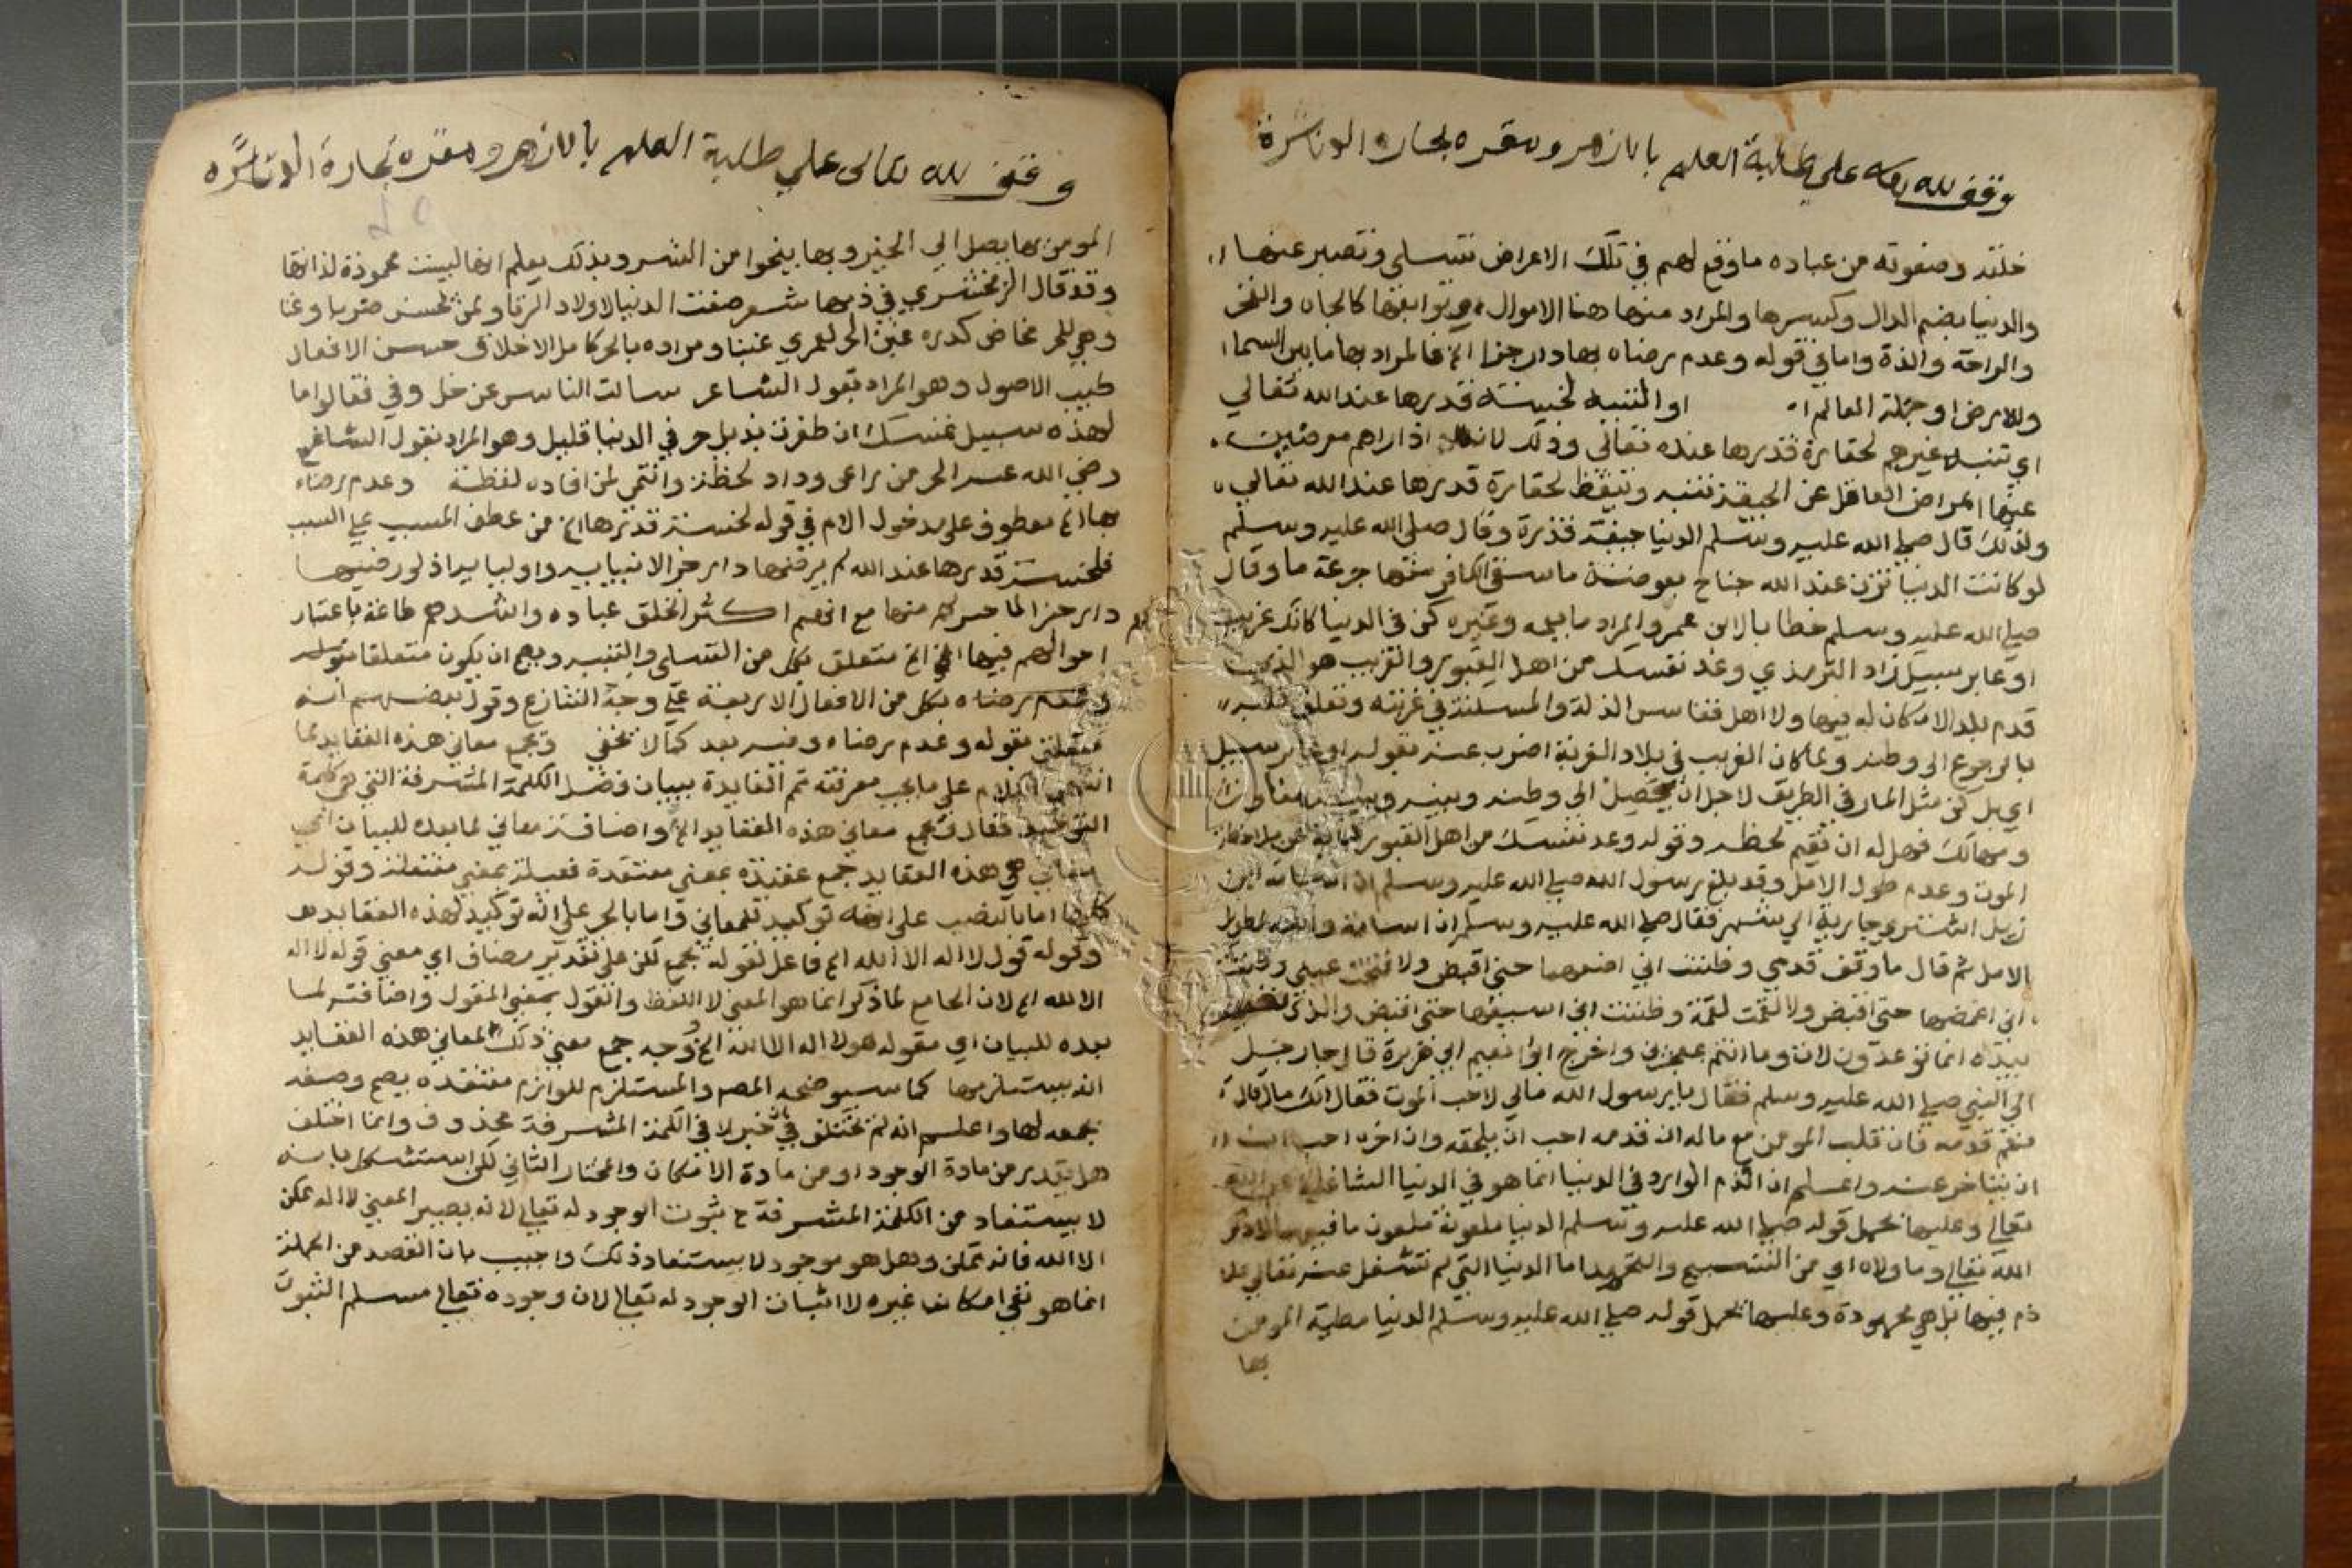 وقف لله تعالى علي طلبة العلم بالازهر ومقره بحارة
خلقه وصفوته من عباده ما وقع لهم في تلك الاعراض تتسلى وتصبر عنها
والدنيا بضم الدال وكسرها والمراد منها هنا الاموال وتوابعها كالجاه والفخر
والراحة والذة واما في قوله وعدم رضاه بها دار جزا الخ فالمراد بها ما بين السماء
والارض او جملة العالم او التنبه لخسة قدرها عند الله تعالي
اي تنبه غيرهم لحقارة قدرها عنده تعالى وذلك لانه اذا راهم معرضين
عنها اعراض العاقل عن الجيفة تنبه وتيقظ لحقارة قدرها عند الله تعالي
ولذلك قال صلي الله عليه وسلم الدنيا جيفة قذرة وقال صلي الله عليه وسلم
لو كانت الدنيا تزن عند الله جناح بعوضة ما سقي الكافر منها جرعة ما وقال
صلي الله عليه وسلم خطابا لابن عمر والمراد ما يعمه وغيره كن في الدنيا كانك غريب
او عابر سبيل زاد الترمذي وعد نفسك من اهل القبور والغريب هو الذي
قدم بلدا لا مكان له فيها ولا اهل فقاسي الذلة والمسكنة في غربته وتعلق قلبه
بالرجوع الى وطنه ولما كان الغريب في بلاد الغربة اضرب عنه بقوله او عابر سبيل
اي بل كن مثل المار في الطريق لاجل ان يصل الى وطنه وبينه وبينه مفاوز
ومهالك فهل له ان يقيم لحظة وقوله وعد نفسك من اهل القبور كناية عن ملاحظة
الموت وعدم طول الامل وقد بلغ رسول الله صلي الله عليه وسلم ان اسامة ابن
زيد اشتري جارية الي شهر فقال صلي الله عليه وسلم ان اسامة والله لطويل
الامل ثم قال ما وقف قدمي وظننت اني اضعها حتى اقبض ولا فتحت عيني وظننت
اني اغمضها حتى اقبض ولا لقمت لقمة وظننت اني اسيغها حتى اقبض والذي نفسي
بيده انما توعدون لات وما انتم بمعجزين واخرج ابو نعيم ابي هريرة قال جا رجل
الي النبي صلي الله عليه وسلم فقال يا رسول الله مالي لا احب الموت فقال الك مال قال
نعم قدمه فان قلب المومن مع ماله ان قدمه احب ان يلحقه وان اخره احب
ان يتاخر عنه واعلم ان الذم الوارد في الدنيا انما هو في الدنيا الشاغلة عن الله
تعالي وعليها يحمل قوله صلي الله عليه وسلم الدنيا ملعونة ملعون ما فيها الا ذكر
الله تعالي وما والاه اي من التسبيح والتحميد اما الدنيا التي لم تشغل عنه تعالي فلا
ذم فيها بل هي محمودة وعليها يحمل قوله صلي الله عليه وسلم الدنيا مطية المومن
بها
وقف لله تعالى علي طلبة العلم بالازهر ومقره بحارة
المومن بها يصل الي الخير وبها ينجوا من الشر وبذلك يعلم انها ليست محمودة لذاتها
وقد قال الزمخشري في ذمها شعر صفت الدنيا لاولاد الزنا ولمن يحسن ضربا وغنا
وهي للحر مخاض كدره غبن الحر لعمري غبنا ومراده بالحر كامل الاخلاق حسن الافعال
طيب الاصول وهو المراد بقول الشاعر سالت الناس عن خل وفي فقالوا ما
لهذه سبيل تمسك ان ظفرت بذيل حر في الدنيا قليل وهو المراد بقول الشافعي
رضي الله عنه الحر من راعى وداد لحظة وانتمى لمن افاده لفظة وعدم رضاه
بها الخ معطوف على مدخول الام في قوله لخسة قدرها الخ من عطف المسبب علي السبب
فلخسة قدرها عند الله لم يرضها دار جزا لانبيايه واوليايه اذ لو رضيها
دار جزا لما حرمهم منها مع انهم اكثر الخلق عباده واشدهم طاعة باعتبار
احوالهم فيها الخ متعلق بكل من التسلي والتنبه ويصح ان يكون متعلقا بقوله
وعدم رضاه بكل من الافعال الاربعة علي وجه التنازع وقول بعضهم انه
متعلق بقوله وعدم رضاه وفيه بعد كما لا يخفي وتجمع معاني هذه العقايد لما
انهي الكلام على ما يجب معرفته تم الفايدة ببيان فضل الكلمة المشرفة التي هي كلمة
التوحيد فقال وتجمع معاني هذه العقايد الخ واضافة معاني لما بعده للبيان اي
معاني هي هذه العقايد جمع عقيدة بمعني معتقدة فعيلة بمعني مفتعلة وقوله
كلها اما بالنصب على انه توكيد للمعاني واما بالجر على انه توكيد لهذه العقايد
وقوله قول لا اله الا الله الخ فاعل لقوله تجمع لكن على تقدير مضاف اي معني قوله لا اله
الا الله الخ لان الجامع لما ذكر انما هو المعني لا اللفظ والقول بمعني المقول واضافته لما
بعده للبيان اي مقول هو لا اله الا الله الخ وجه جمع معني ذلك لمعاني هذه العقايد
انه يستلزمها كما سيوضحه المص والمستلزم للوازم متعددة يصح وصفه
بجمعه لها واعلم انه لم يختلف في ان خبر لا في الكلمة المشرفة محذوف وانما اختلف
هل يقدر من مادة الوجود او من مادة الامكان والمختار الثاني لكن استشكل بانه
لا يستفاد من الكلمة المشرفة ح ثبوت الوجود له تعالي لانه يصير المعني لا اله ممكن
الا الله فانه ممكن وهل هو موجود لا يستفاد ذلك واجيب بان القصد من الجملة
انما هو نفي امكان غيره لا اثبات الوجود له تعالي لان وجوده تعالي مسلم الثبوت